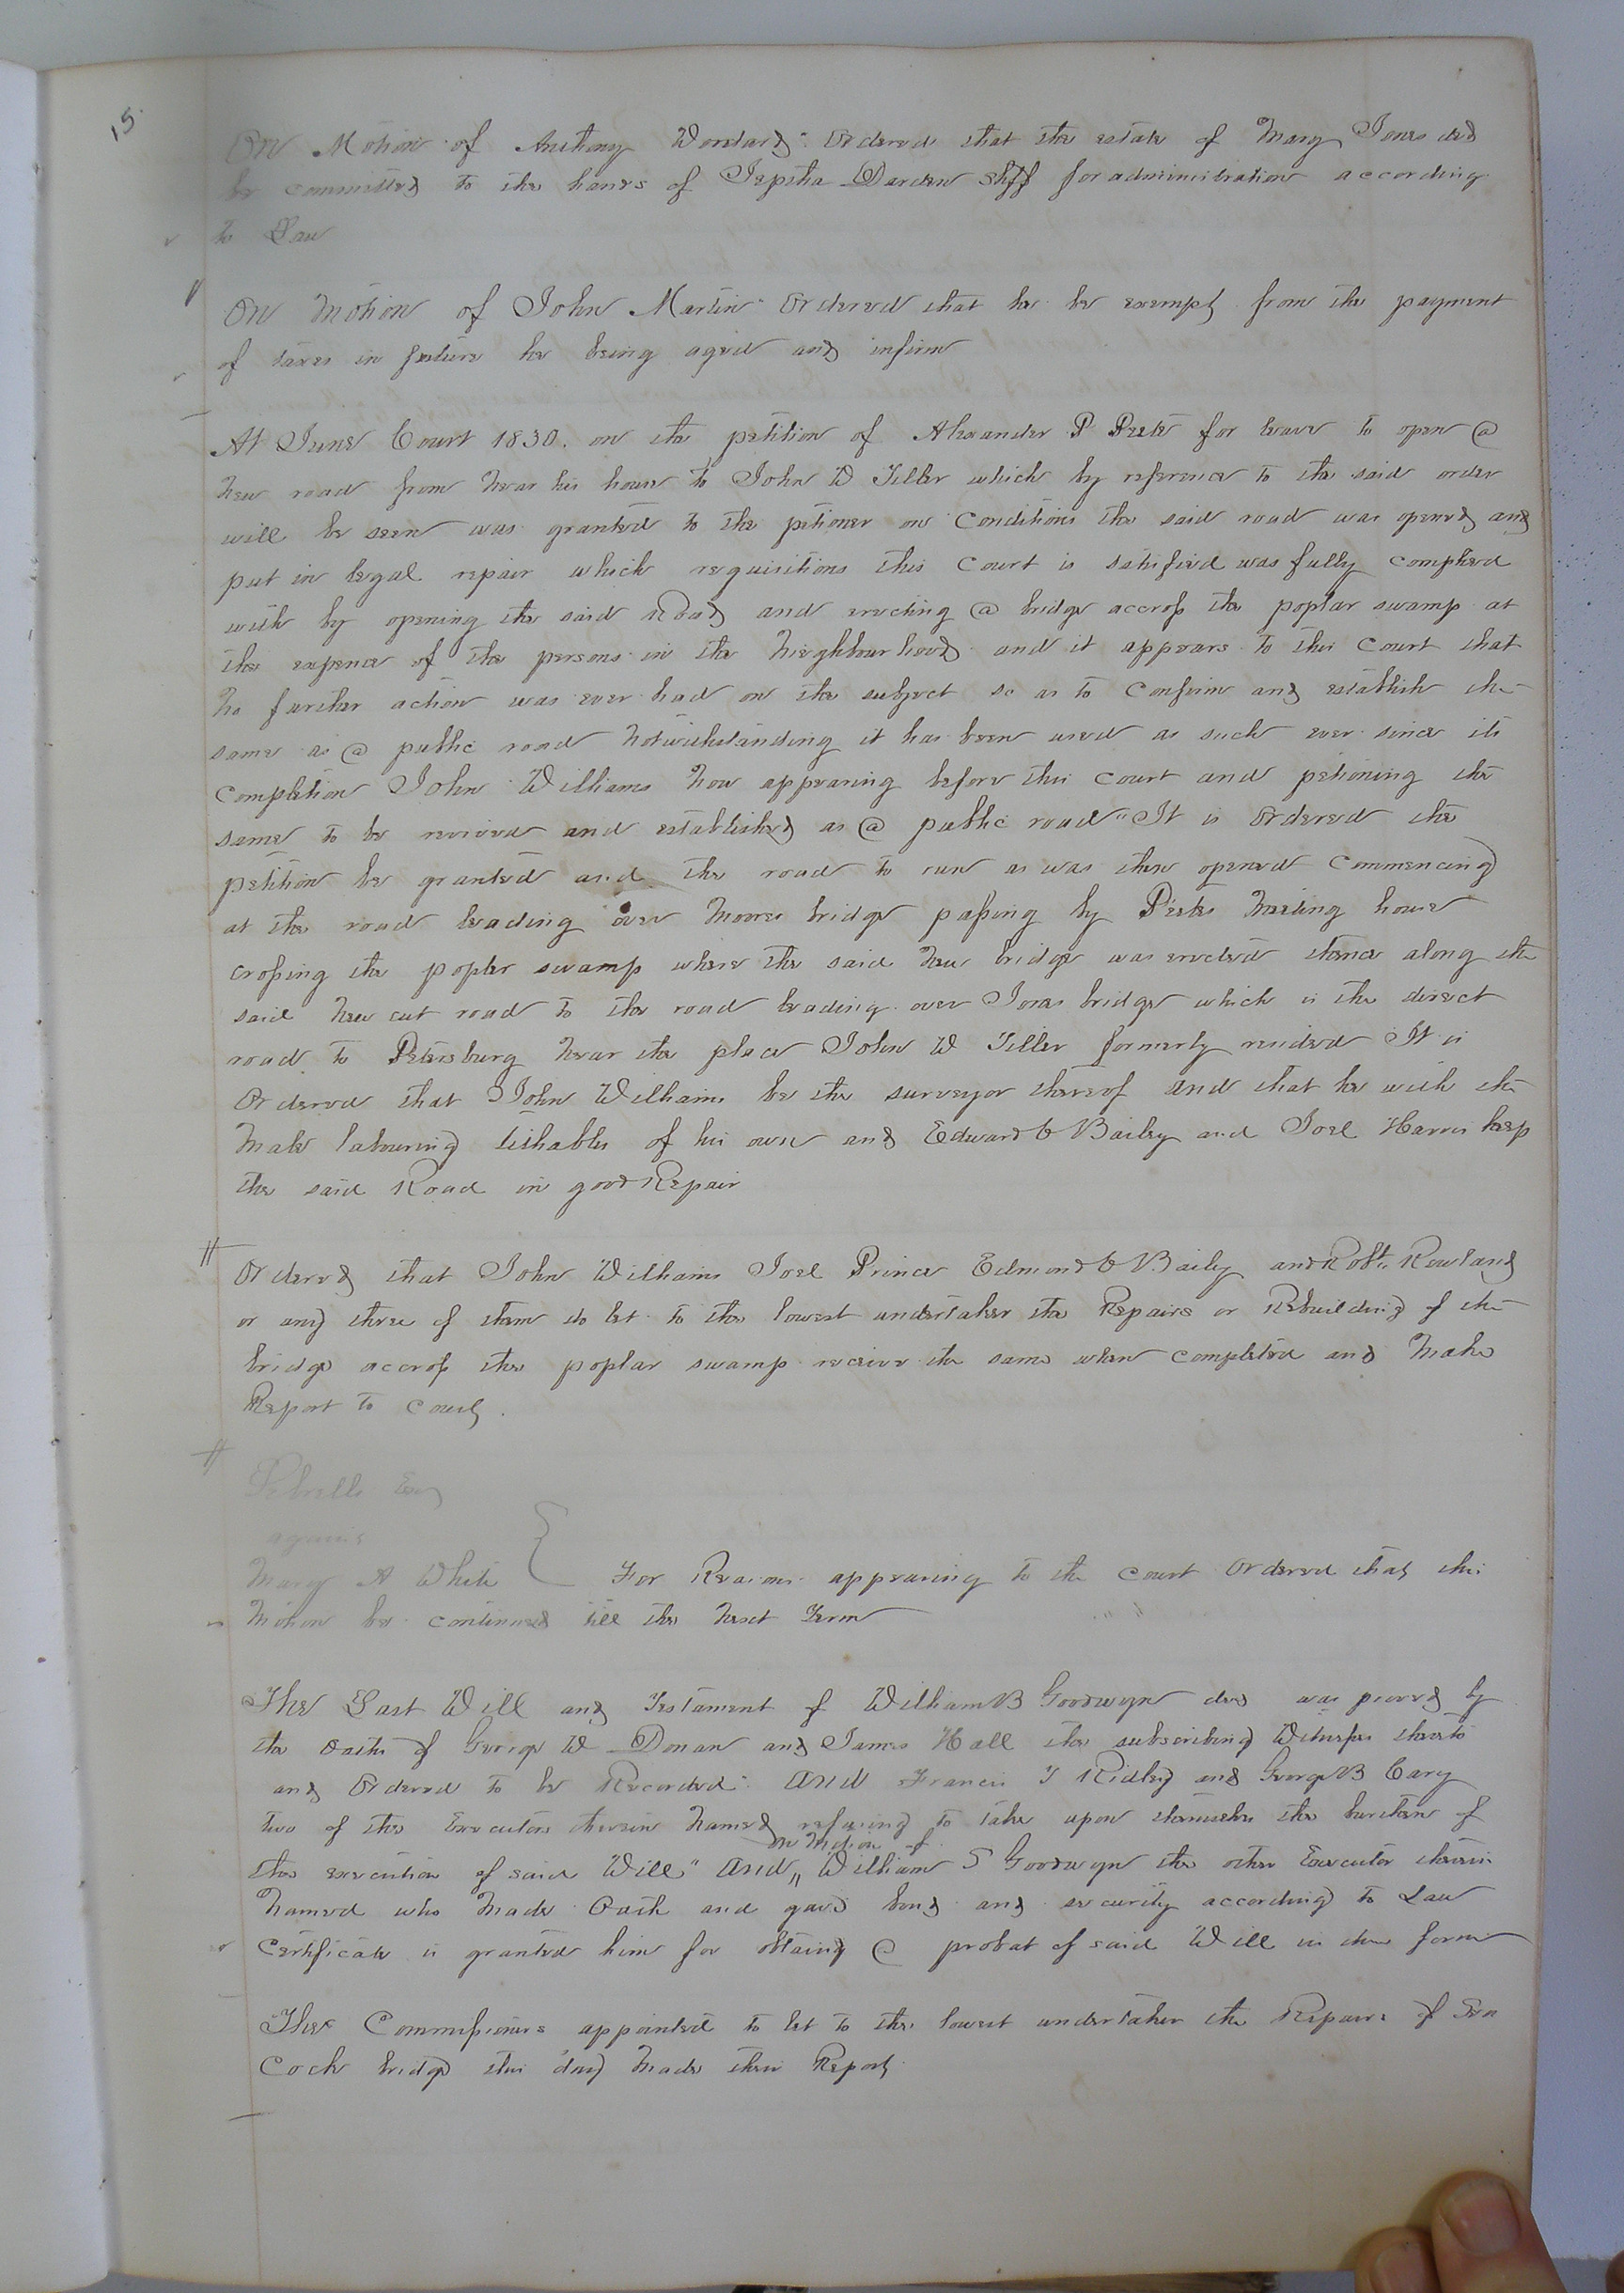 15
On Motion of Anthony Ordered that the estate of Mary Jones decd
be committed to the hands of Jeptha Darden Shff for administration according
to Law
On Motion of John Martin Ordered that he be exempt from the payment
of taxes in future he being aged and infirm
At June Court 1830. on the petition of Alexander P Peete for leave to open @
new road from near his house to John W Tiller which by reference to the said order
will be seen was granted to the petioner on Conditions the said road was opened and
put in legal repair which requisitions this Court is satisfied was fully complied
with by opening the said Road and erecting @ bridge accross the poplar swamp at
the expence of the persons in the Neighbourhood and it appears to this Court that
no further action was ever had on the subject so as to Confirm and establish the
same as @ public road Notwithstanding it has been used as such ever since its
completion John Williams now appearing before this court and petioning the
same to be revived and established as @ public road" It is Ordered the
petition be granted and the road to run as was then opened Commencing
at the road leading over Moores bridge passing by Peetes Meeting house
crossing the popler swamp where the said new bridge was erected thence along the
said new cut road to the road leading over Joras bridge which is the direct
road to Petersburg near the place John W Tiller formerly resided It is
Ordered that John Williams be the surveyor thereof and that he with the
Male labouring tithables of his own and Edward & Bailey and Joel Harris keep
the said Road in good Repair
Ordered that John Williams Joel Prince Edmond & Bailey and Robt. Rowland
or any three of them do let to the lowest undertaker the Repairs or Rebuilding of the
bridge accross the poplar swamp receive the same when completed and Make
Report to Court.
against
Mary A White For Reasons appearing to the court Ordered that this
Motion be continued till the next Term
The Last Will and Testament of William B Goodwyn decd was proved by
the oaths of George W Donan and James Hall the subscribing Witnesses thereto
and Ordered to be Recorded. And Francis T Ridley and George B Cary
two of the Executors therein Named refusing to take upon themselves the burthen of
on Motion of
the execution of said Will" And,, William S Goodwyn the other Executor therein
named who Made Oath and gave bond and security according to Law
Certificate is granted him for obtaing @ probat of said Will in due form
The Commissioners appointed to let to the lowest undertaker the Repairs of Sea
Cock bridge this day Made their Report